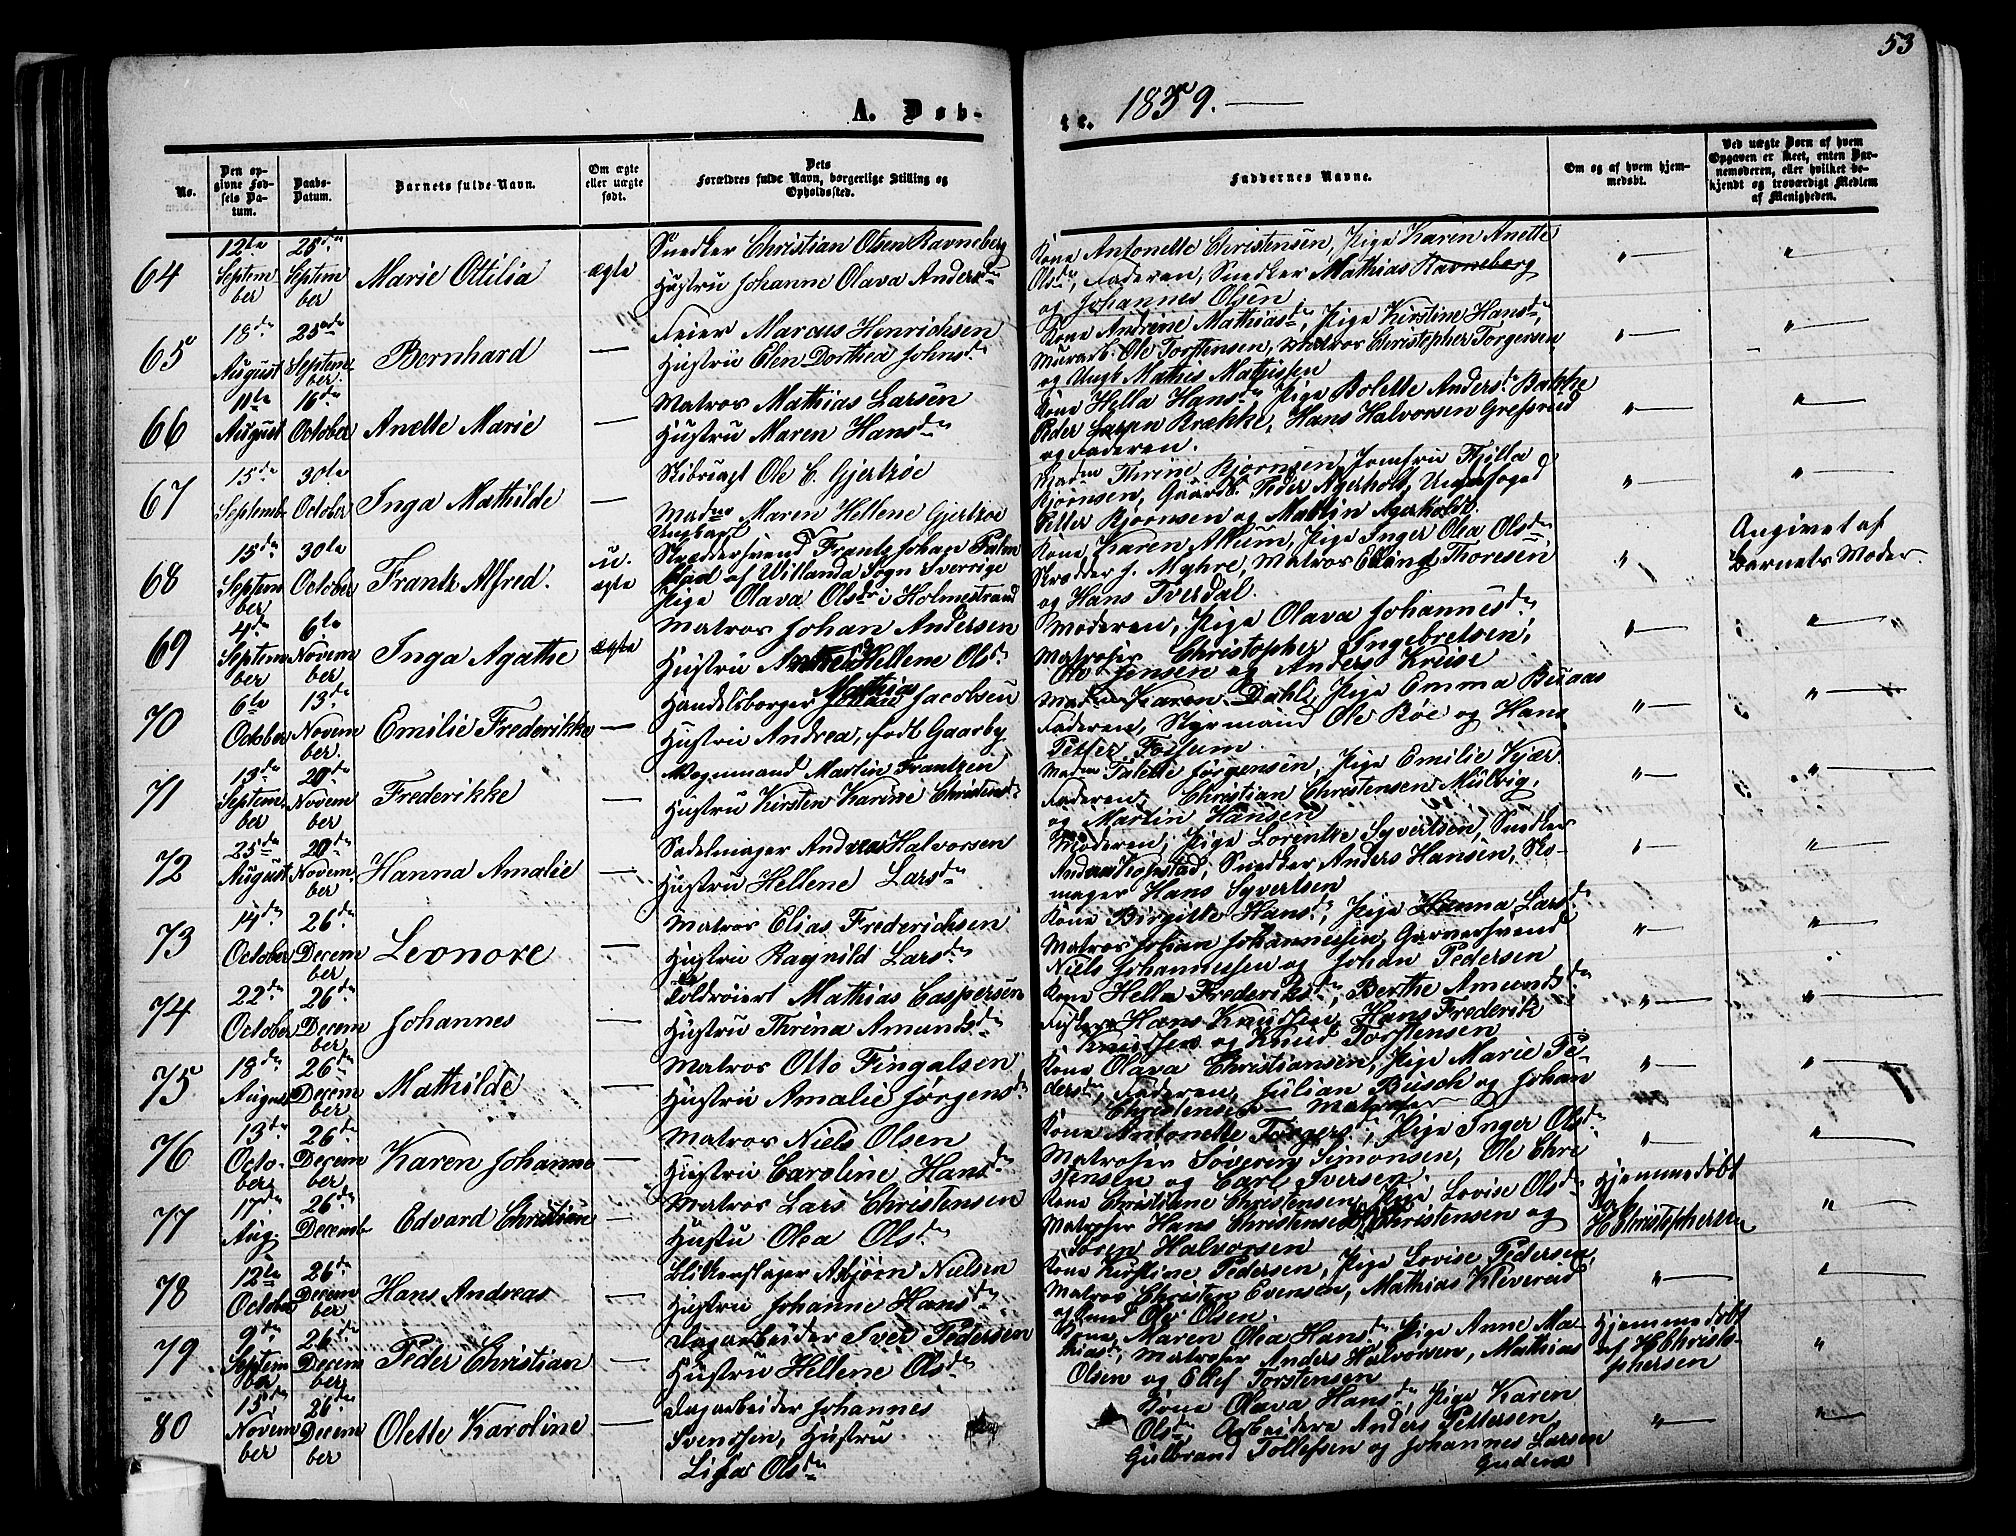 53
A. Døb-
te. 1859. —
No.
Den op-
givne Fød-
sels Da-
tum.
Daabs-
Datum.
Barnets fulde Navn.
Om ægte
eller uægte
født.
Dets
Forældres fulde Navn, borgerlige Stilling og
Opholdssted.
Faddernes Navne.
Om og af hvem hjem-
medøbt.
Ved uægte Børn af hvem
Opgaven er skeet, enten Bar-
nemoderen, eller hvilket be-
kjendt og troværdigt Medlem
af Menigheden.
64
12te
Septem
ber
25de
Septem
ber
Marie Ottilia
ægte
Snedker Christian Olsen Ravneberg
Hustru Johanne Olava Andersdn
Kone Antonette Christensen, Pige Karen Anette
Olsdn, Faderen, Snedker Mathias Ravneberg
og Johannes Olsen
" —
"
65
18de
August
25de
Septem
ber
Bernhard
—
Feier Marcus Henrichsen
Hustru Elen Dorthea Johnsdn
Kone Andrine Mathiasdn, Pige Kirstine Hansdn,
Murarb. Ole Torstensen, Matros Christopher Torgersen
og Ungk Mathis Mathissen
" —
" —
66
11te
August
16de
October
Anette Marie
—
Matros Mathias Larsen
Hustru Maren Hansdn
Kone Hella Hansdn Pige Bolette Andersdn Bakke
Peder Brække, Hans Halvorsen
og Faderen.
" —
" —
67
15de
Septemb
30te
October
Inga Mathilde
—
Skibsrigt Ole C. Gjertsøe
Madme Maren Hellene Gjertsøe
Madme Thrine Bjørnsen, Jomfru
Bjørnsen, Gaardb. Peder Agerholt,
Petter Bjørnsen og Martin Agerholdt.
" —
" —
68
15de
Septem
ber
30te
October
Frantz Alfred.
u.
ægte
Ungkarl
Skræddersvend Frantz Johan
af Willanda Sogn Sverrige
Pige Olava Olsdn i Holmestrand
Kone Karen Allum, Pige Inger Olea Olsdn,
Skrædder J. Myhre, Matros Elling Thoresen
og Hans Tverdal.
"
Angivet af
Barnets Moder.
69
4de
Septem
ber
6te
Novem
ber
Inga Agathe
ægte
Matros Johan Andersen
Hustru Andrea Hellene Olsdn
Moderen, Pige Olava Johannesdn
Matroser Christopher Ingebretsen,
Ole Jensen og Anders Kreise
" —
" —
70
6te
October
13de
Novem
ber
Emilie Frederikke
—
Mathia
Handelsborger Jacobsen
Hustru Andrea, født Gaarby
Karen Dahl, Pige Emma Buaas
Faderen, Styrmand Ole Røe og Hans
Petter Fossum
" —
" —
71
13de
Septem
ber
20de
Novem
ber
Frederikke
—
Vognmand Martin Frantzen
Hustru Kirsten Karine Christensdn
Madm Talette Jørgensen, Pige Emilie Kjær
Faderen, Christian Christensen Mulvig,
og Martin Hansen
" —
" —
72
25de
August
20de
Novem
ber
Hanna Amalie
—
Sadelmager Andreas Halvorsen
Hustru Hellene Larsdn
Moderen, Pige Lorentze Syvertsen, Snedker
Andreas Kopstad, Snedker Anders Hansen, Sko-
mager Hans Syvertsen
" —
" —
73
14de
October
26de
Decem
ber
Leonore
—
Matros Elias Frederichsen
Hustru Ragnild Larsdn
Kone Birgitte Hansdn, Pige Hanna Larsdn
Matros Johan Johannessen, Garversvend
Niels Johannessen og Johan Pedersen
" —
" —
74
22de
October
26de
Decem
ber
Johannes
—
Toldroiert Mathias Caspersen
Hustru Thrina Amundsdn
Kone Hella Frederiksdn, Berthe Amundsdn
Fisker Hans Knudsen, Hans Frederik
Knudsen og Knud Torstensen
" —
" —
75
18de
August
26de
Decem
ber
Mathilde
—
Matros Otto Fingalsen
Hustru Amalie Jørgensdn
Kone Olava Christiansen, Pige Marie Pe-
dersdn, Faderen, Julian Busch og Johan
Christensen — Matroser
" —
" —
76
13de
Octo-
ber
26de
Decem
ber
Karen Johanne
—
Matros Niels Olsen
Hustru Caroline Hansdn
Kone Antonette Torgersdn, Pige Inger Olsdn
Matroser Søvering Simonsen, Ole Chri
stensen og Carl Iversen
" —
" —
77
17de
Aug.
26de
Decemb
Edvard Christian
—
Matros Lars Christensen
Hustu Olea Olsdn
Kone Christiane Christensen, Pige Lovise Olsdn
Matroser Hans Christensen, Christensen og
Søren Halvorsen
Hjemmedøbt
af
H Christophersen
" —
78
12te
October
26de
Decem
ber
Hans Andreas
—
Blikkenslager Asbjørn Nielsen
Hustru Johanne Hansdn
Kone Kirstine Pedersen, Pige Lovise Pedersen,
Matros Christen Evensen, Mathias Kleverud
og Ole Olsen.
" —
" —
79
9de
Septem
ber
26de
Decem
ber
Peder Christian
—
Dagarbeider Iver Pedersen
Hustru Hellene Olsdn
Kone Maren Olea Hansdn, Pige Anne Ma-
thiasdn, Matroser Anders Halvorsen, Mathias
Olsen og Ellef Torstensen
Hjemmedøbt
af H Christo-
phersen
"
80
15de
Novem
ber
26de
Decem
ber
Olette Karoline
—
Dagarbeider Johannes
Svendsen, Hustru
Lisa Olsdn
Kone Olava Hansdn, Pige Karen
Olsdn Arbeidere Anders Pettersen,
Gulbrand Tollefsen og Johannes Larsen
" —
" —